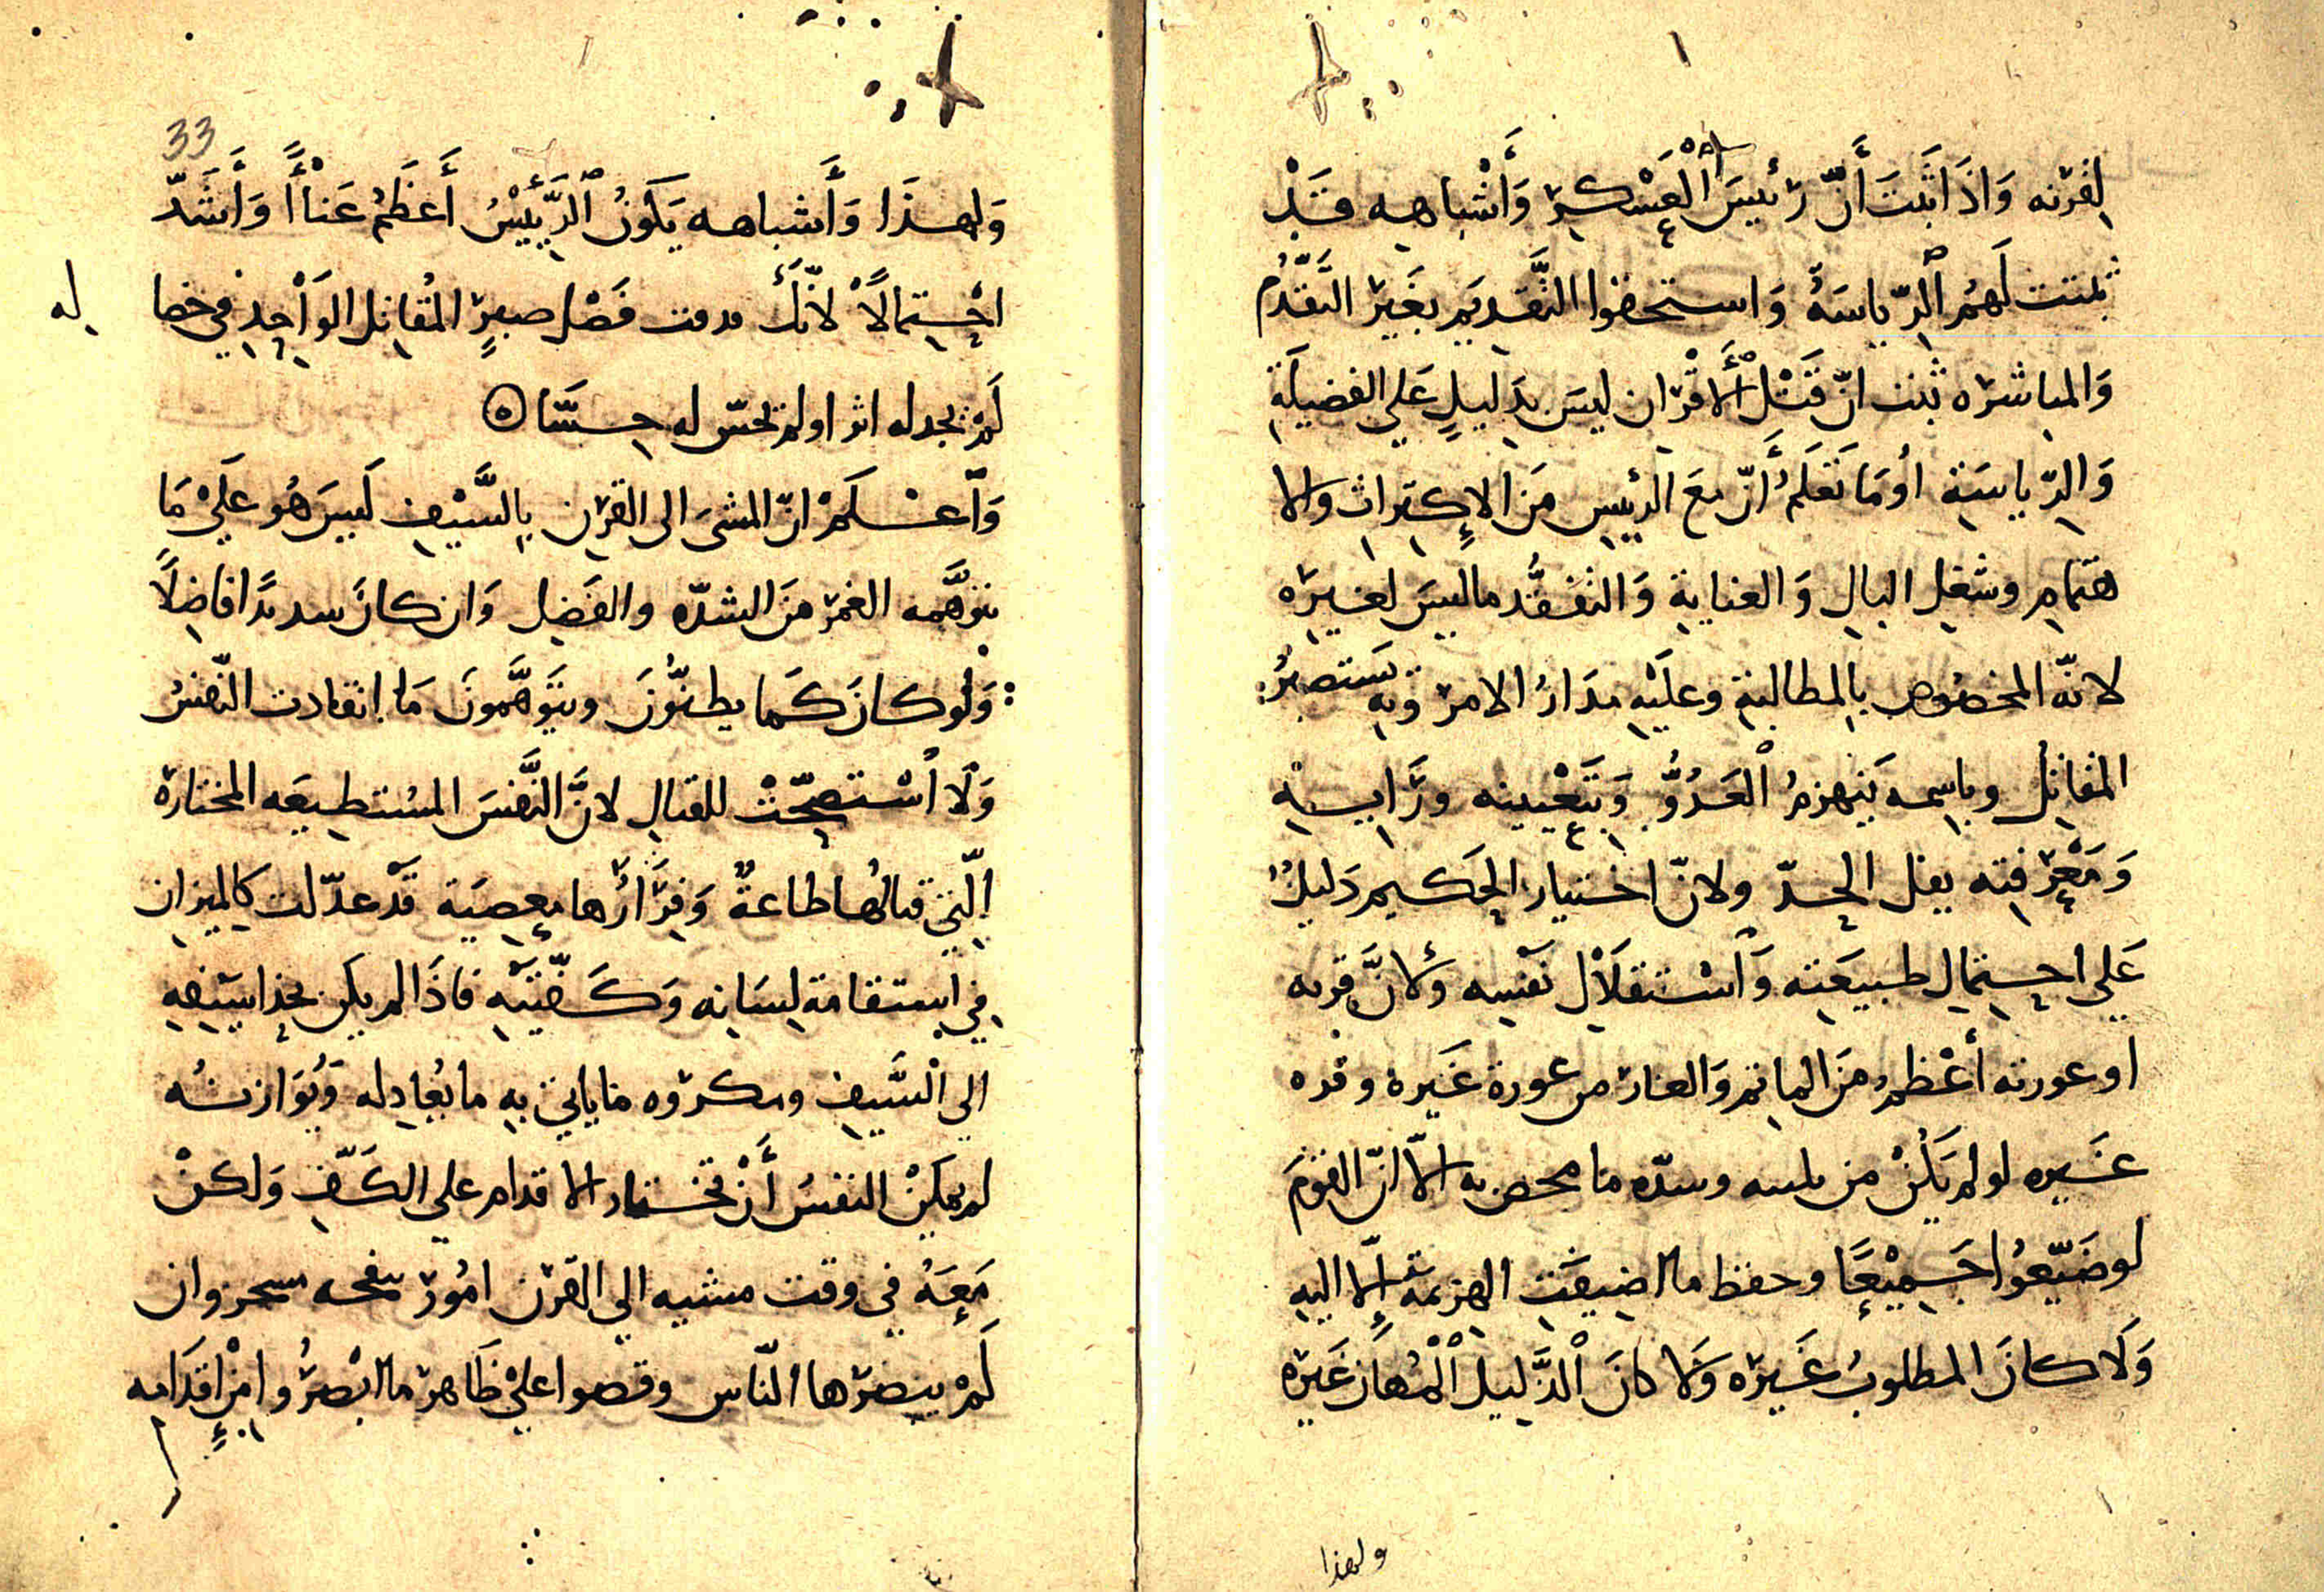 لقرنه وَاذَا ثَبتَ أَنّ رئيسَ الْعَسْكرِ وَأَشْباهه قَدْ
ثبتت لَهمُ الرِّياسَةُ وَاستحقوا التَّقديمَ بغَيْر التَّقدُّم
وَالمباشرة ثبت انّ قَتْل الأَقْران ليسَ بدَليلٍ عَلى الفضيلَةِ
وَالرِّياسَةِ أوَمَا تَعْلَمُ أَنّ مَعَ الرئيسِ مَن الإِكتراثِ والا
هتمامِ وشغلِ البالِ وَالعنايةِ وَالتفَقُّد ما ليسَ لغيرَه
لانّه المخصُوص بالمطالبةِ وعليْهِ مدَارُ الامر وبهِ يَستَبصرُ
المقاتِل وباسمه يَنهزمُ الْعَدُوُّ وَبتَعْيينه ورَايهِ
وَمَعْرفته يفل الحدّ ولانّ اختيار الحَكيم دَليلٌ
عَلى احتِمالِ طبيعَته وَاسْتقلَالِ نَفْسِه وَلأنَّ فره
او عورته أعْظمُ مَن الماثم وَالعار من عورة غَيره وفره
غيره لو لم يَكُنْ من وسدّه ما الاّ انّ القومَ
لو ضَيّعُوا جَميْعًا وحفظ ما اضيفَت الهزيمة إلّا اليهِ
وَلَا كانَ المطلوبُ غَيرَه وَلا كانَ الْذَّليل الْمُهَان غَيرَه
ولهذا
33
وَلهذَا وَأَشباهه يَكونُ الرَّئيْسُ أَعظَمُ عَناْءًا وَأَشَدّ
احْتِمالًا لانّكَ فضْل صبرِ المُقاتِل الوَاحِدِ في خصا
له
لَمْ تجد له اثرا ولم تحسّ له حِسًّا
وَاعْلَمْ انّ المشىَ الى القرْنِ بالسَّيْفِ لَيسَ هُو عَلىْ مَا
يتوَهَّمه الغمرُ مَن الشدّه والفَضل وَان كانَ شديدًا فاضِلاً
وَلَوْ كانَ كَما يظنُّونَ ويتَوَهَّمونَ مَا انقادت النّفسُ
وَلَا اُسْتصحّتْ للقتالِ لانَّ النَّفسَ المسْتطيعَه المختارة
الّتي قتالُها طاعةٌ وَفِرَارُها مَعصيَة قَدْ عدّلت كالميزانِ
في استقامةِ لسَانه وَكَفّتيْه فاذَا لم يكن بحذا سيفهِ
الى السَّيفِ ومكروه ما ياتي به ما يُعادِله وَيُوَازنُه
لم يمكِنْ النفسُ أَنْ تختار الاقدام على الكَفّ وَلكنْ
مَعَهُ في وقت مشيه الى القرْن امُورٌ وان
لَمْ يبصرْها النّاس وقصوا علىْ ظَاهر ما ابْصرُوا مِنْ إقدَامه